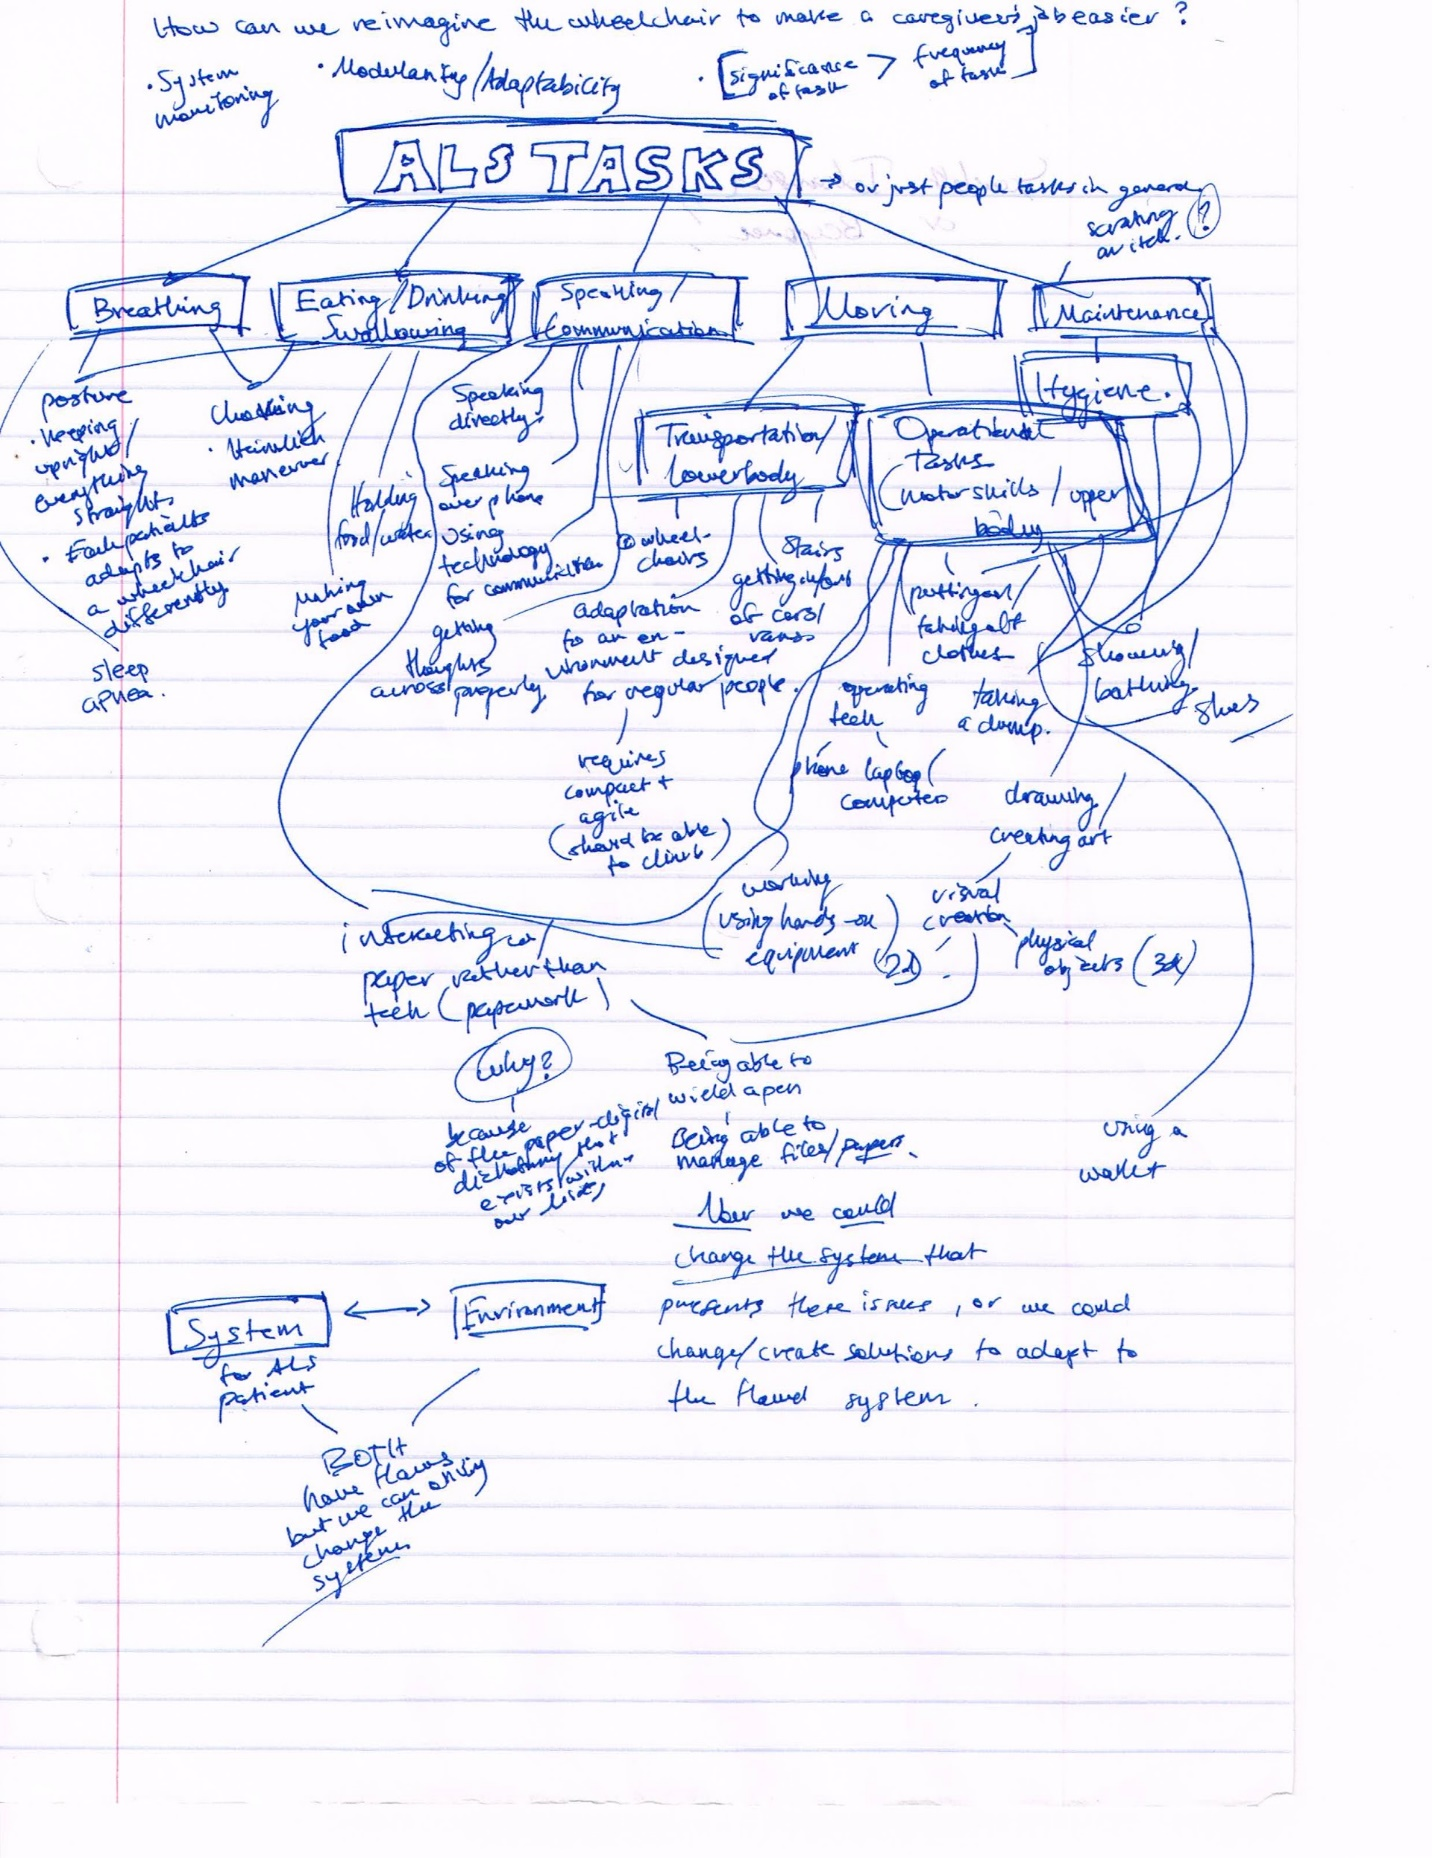 How can we reimagine the wheelchair to make a caregiver's job easier?
· System
monitoring
· Modularity/Adaptability
· [significance
of task
>
frequency
of task]
ALS TASKS
→ or just people tasks in general
scratching
an itch. ?
Breathing
Eating/Drinking
Swallowing
Speaking/
Communication
Moving
Maintenance
Hygiene.
posture
· keeping
upright/
everything
straight
· Each patients
adapts to
a wheelchair
differently
sleep
apnea.
Choking
· Heimlich
maneuver
Holding
food/water
making
your own
food
Speaking
directly
Speaking
over phone
using
technology
for communication
getting
thoughts
across properly
Transportation/
lowerbody
wheel-
chairs
adaptation
to an en-
vironment designed
for regular people.
requires
compact +
agile
(should be able
to climb)
stairs
getting in/out
of cars/
vans
Operational
Tasks
(motor skills / upper
body
putting on/
taking off
clothes
operating
tech
phone laptop/
computers
taking
a dump.
showering/
bathing
shoes
drawing/
creating art
visual
creation
(2d)
physical
objects (3d)
working
(using hands-on
equipment)
using a
wallet
interacting w/
paper rather than
tech (paperwork)
Why?
because
of the paper-digital
dichotomy that
exists within
our lives
Being able to
wield a pen
Being able to
manage files/papers.
Now we could
change the system that
presents these issues, or we could
change/create solutions to adapt to
the flawed system.
System
for ALS
patient
Environment
BOTH
have flaws
but we can only
change the
system